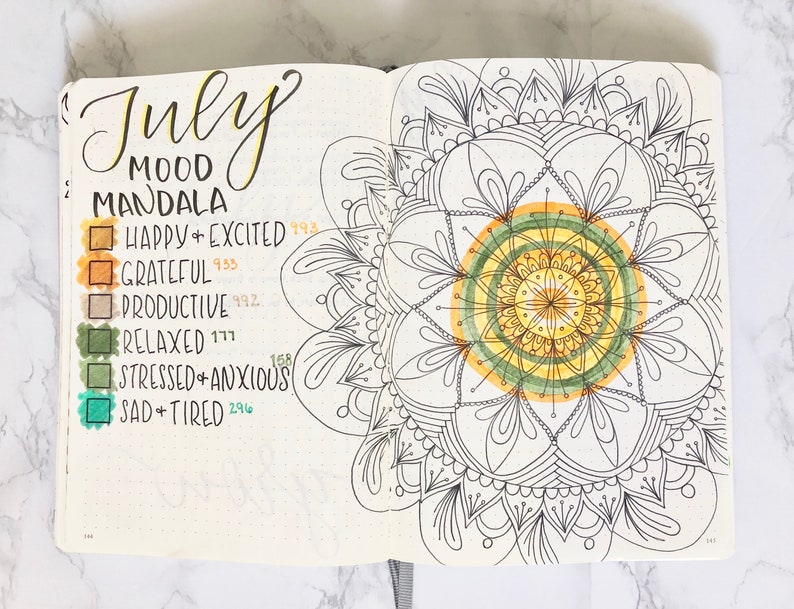 July
MOOD
MANDALA
HAPPY + EXCITED 993
GRATEFUL 933
PRODUCTIVE 992
RELAXED 177
STRESSED + ANXIOUS 158
SAD + TIRED 296
144
145